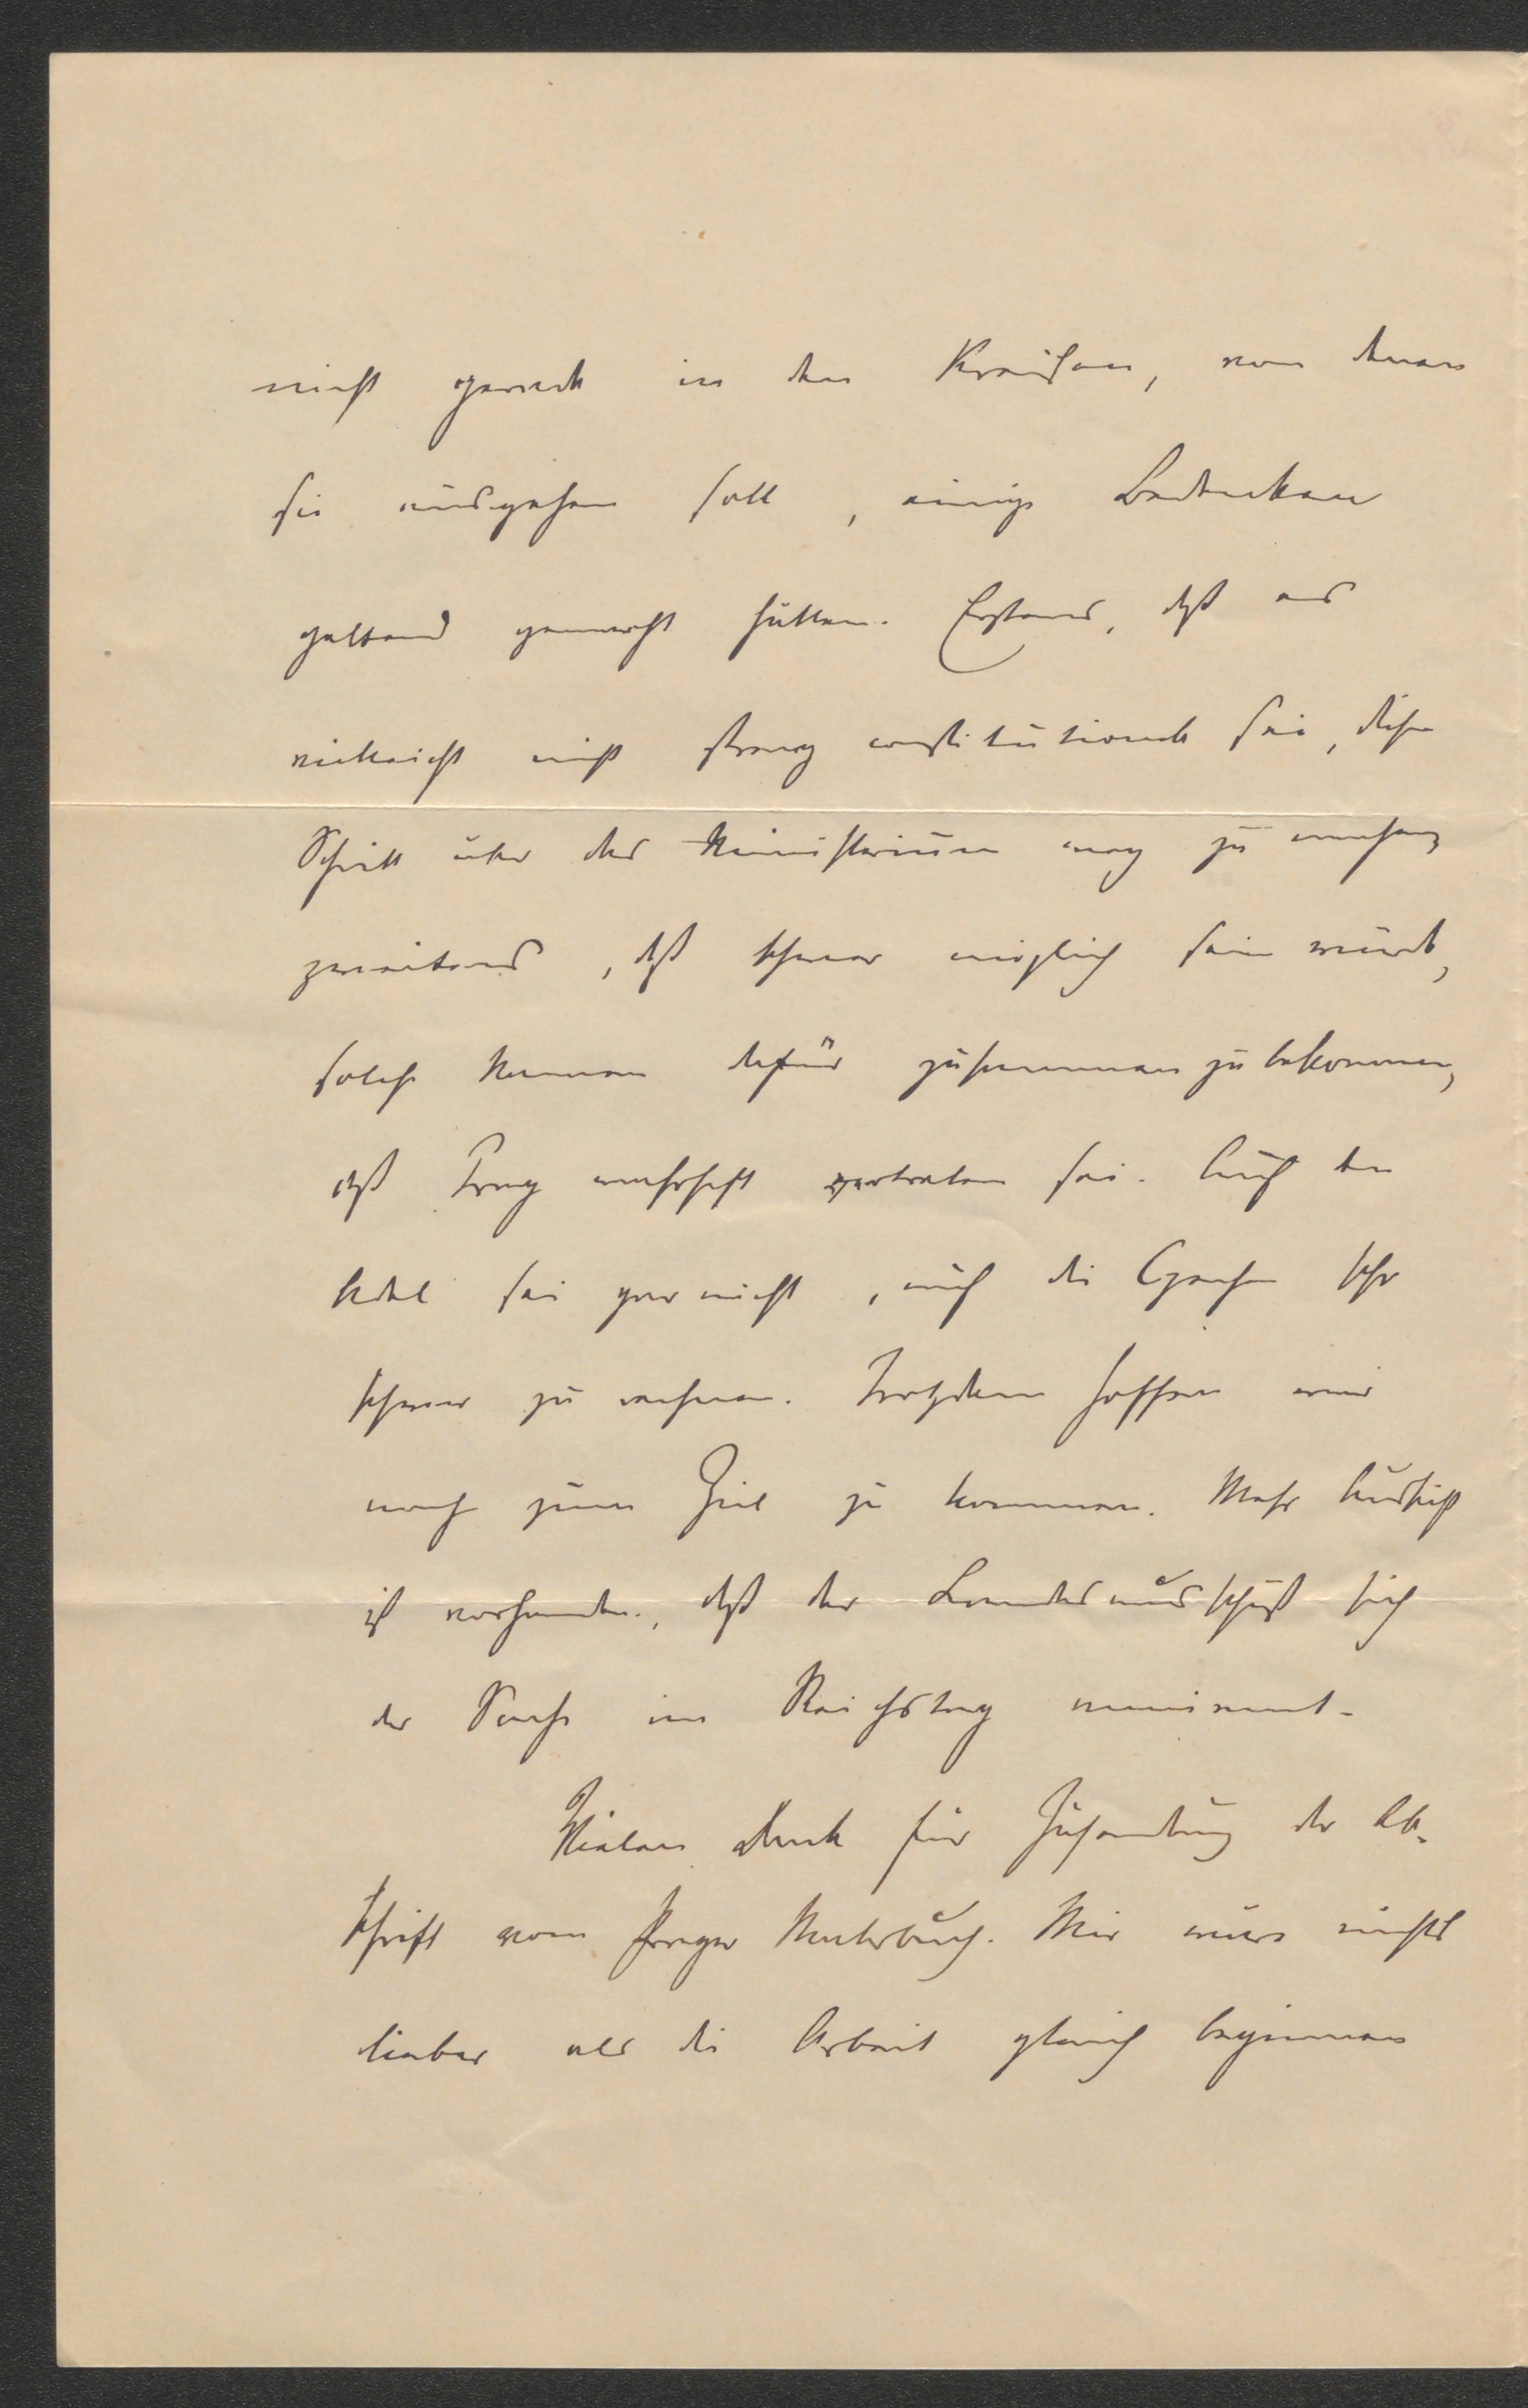 nicht gerade in den Kreisen, von denen
sie ausgehen soll, einige Bedenken
geltend gemacht hätten. Erstens, daß es
vielleicht nicht streng constitutionell sei, diesen
Schritt über das Ministerium weg zu machen,
zweitens, daß schwer möglich sein würde,
solche Namen dafür zusammenzubekommen,
daß Prag wahrhaft vertreten sei. Auch der
Adel sei gar nicht, auch die Czechen sehr
schwer zu nehmen. Trotzdem hoffen wir
noch zum Ziel zu kommen. Mehr Aussicht
ist vorhanden, daß der Landesausschuß sich
der Sache im Reichstag annimmt.
Vielen Dank für Zusendung der Ab-
schrift vom Prager Malerbuch. Mir wäre nichts
lieber als die Arbeit gleich beginnen